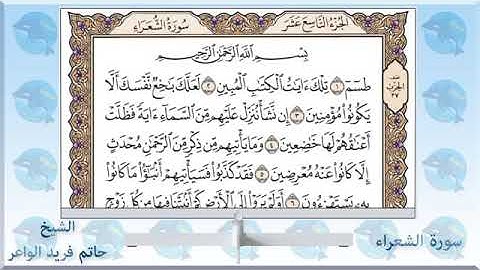 الجزء التاسع عشر
سورة الشعراء
بِسْمِ ٱللَّهِ ٱلرَّحْمَٰنِ ٱلرَّحِيمِ
طسٓمٓ ١ تِلْكَ ءَايَٰتُ ٱلْكِتَٰبِ ٱلْمُبِينِ ٢ لَعَلَّكَ بَٰخِعٌ نَّفْسَكَ أَلَّا
يَكُونُوا۟ مُؤْمِنِينَ ٣ إِن نَّشَأْ نُنَزِّلْ عَلَيْهِم مِّنَ ٱلسَّمَآءِ ءَايَةً فَظَلَّتْ
أَعْنَٰقُهُمْ لَهَا خَٰضِعِينَ ٤ وَمَا يَأْتِيهِم مِّن ذِكْرٍ مِّنَ ٱلرَّحْمَٰنِ مُحْدَثٍ
إِلَّا كَانُوا۟ عَنْهُ مُعْرِضِينَ ٥ فَقَدْ كَذَّبُوا۟ فَسَيَأْتِيهِمْ أَنۢبَٰٓؤُا۟ مَا كَانُوا۟
بِهِۦ يَسْتَهْزِءُونَ ٦ أَوَلَمْ يَرَوْا۟ إِلَى ٱلْأَرْضِ كَمْ أَنۢبَتْنَا فِيهَا مِن كُلِّ زَوْجٍ
الحزب
٣٧
سورة الشعراء
الشيخ
حاتم فريد الواعر